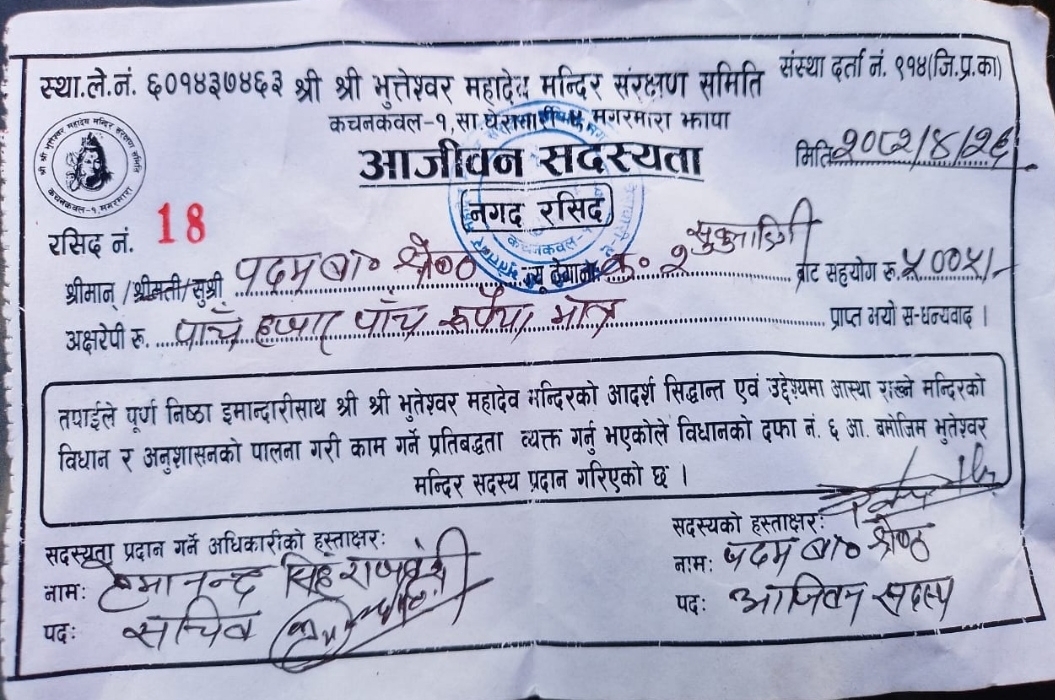 स्था.ले.नं. ६०१४३७४६३ श्री श्री भुत्तेश्वर महादेव मन्दिर संरक्षण समिति संस्था दर्ता नं. ९१४(जि.प्र.का)
कचनकवल-१, सा.घेरावारी-५, मगरमारा झापा
आजीवन सदस्यता
मिति २०८२/४/२६
नगद रसिद
श्री श्री भुतेश्वर महादेव मन्दिर संरक्षण समिति
कचनकवल-१, मगरमारा
रसिद नं. 18
श्रीमान् /श्रीमती/सुश्री पदम बा० श्रेष्ठ ज्यू ठेगानाः क० १ सुकुनाडिगी बाट सहयोग रू. ५००५/-
अक्षरेपी रू. पाँच हजार पाँच रूपैया मात्र प्राप्त भयो स-धन्यवाद ।
तपाईले पूर्ण निष्ठा इमान्दारीसाथ श्री श्री भुतेश्वर महादेव मन्दिरको आदर्श सिद्धान्त एवं उद्देश्यमा आस्था राख्ने मन्दिरको
विधान र अनुशासनको पालना गरी काम गर्ने प्रतिबद्धता व्यक्त गर्नु भएकोले विधानको दफा नं. ६ आ. बमोजिम भुतेश्वर
मन्दिर सदस्य प्रदान गरिएको छ ।
सदस्यता प्रदान गर्ने अधिकारीको हस्ताक्षरः
नामः हेमानन्द सिंह राजवंशी
पदः सचिव
सदस्यको हस्ताक्षरः
नामः पदम बा० श्रेष्ठ
पदः आजिवन सदस्य